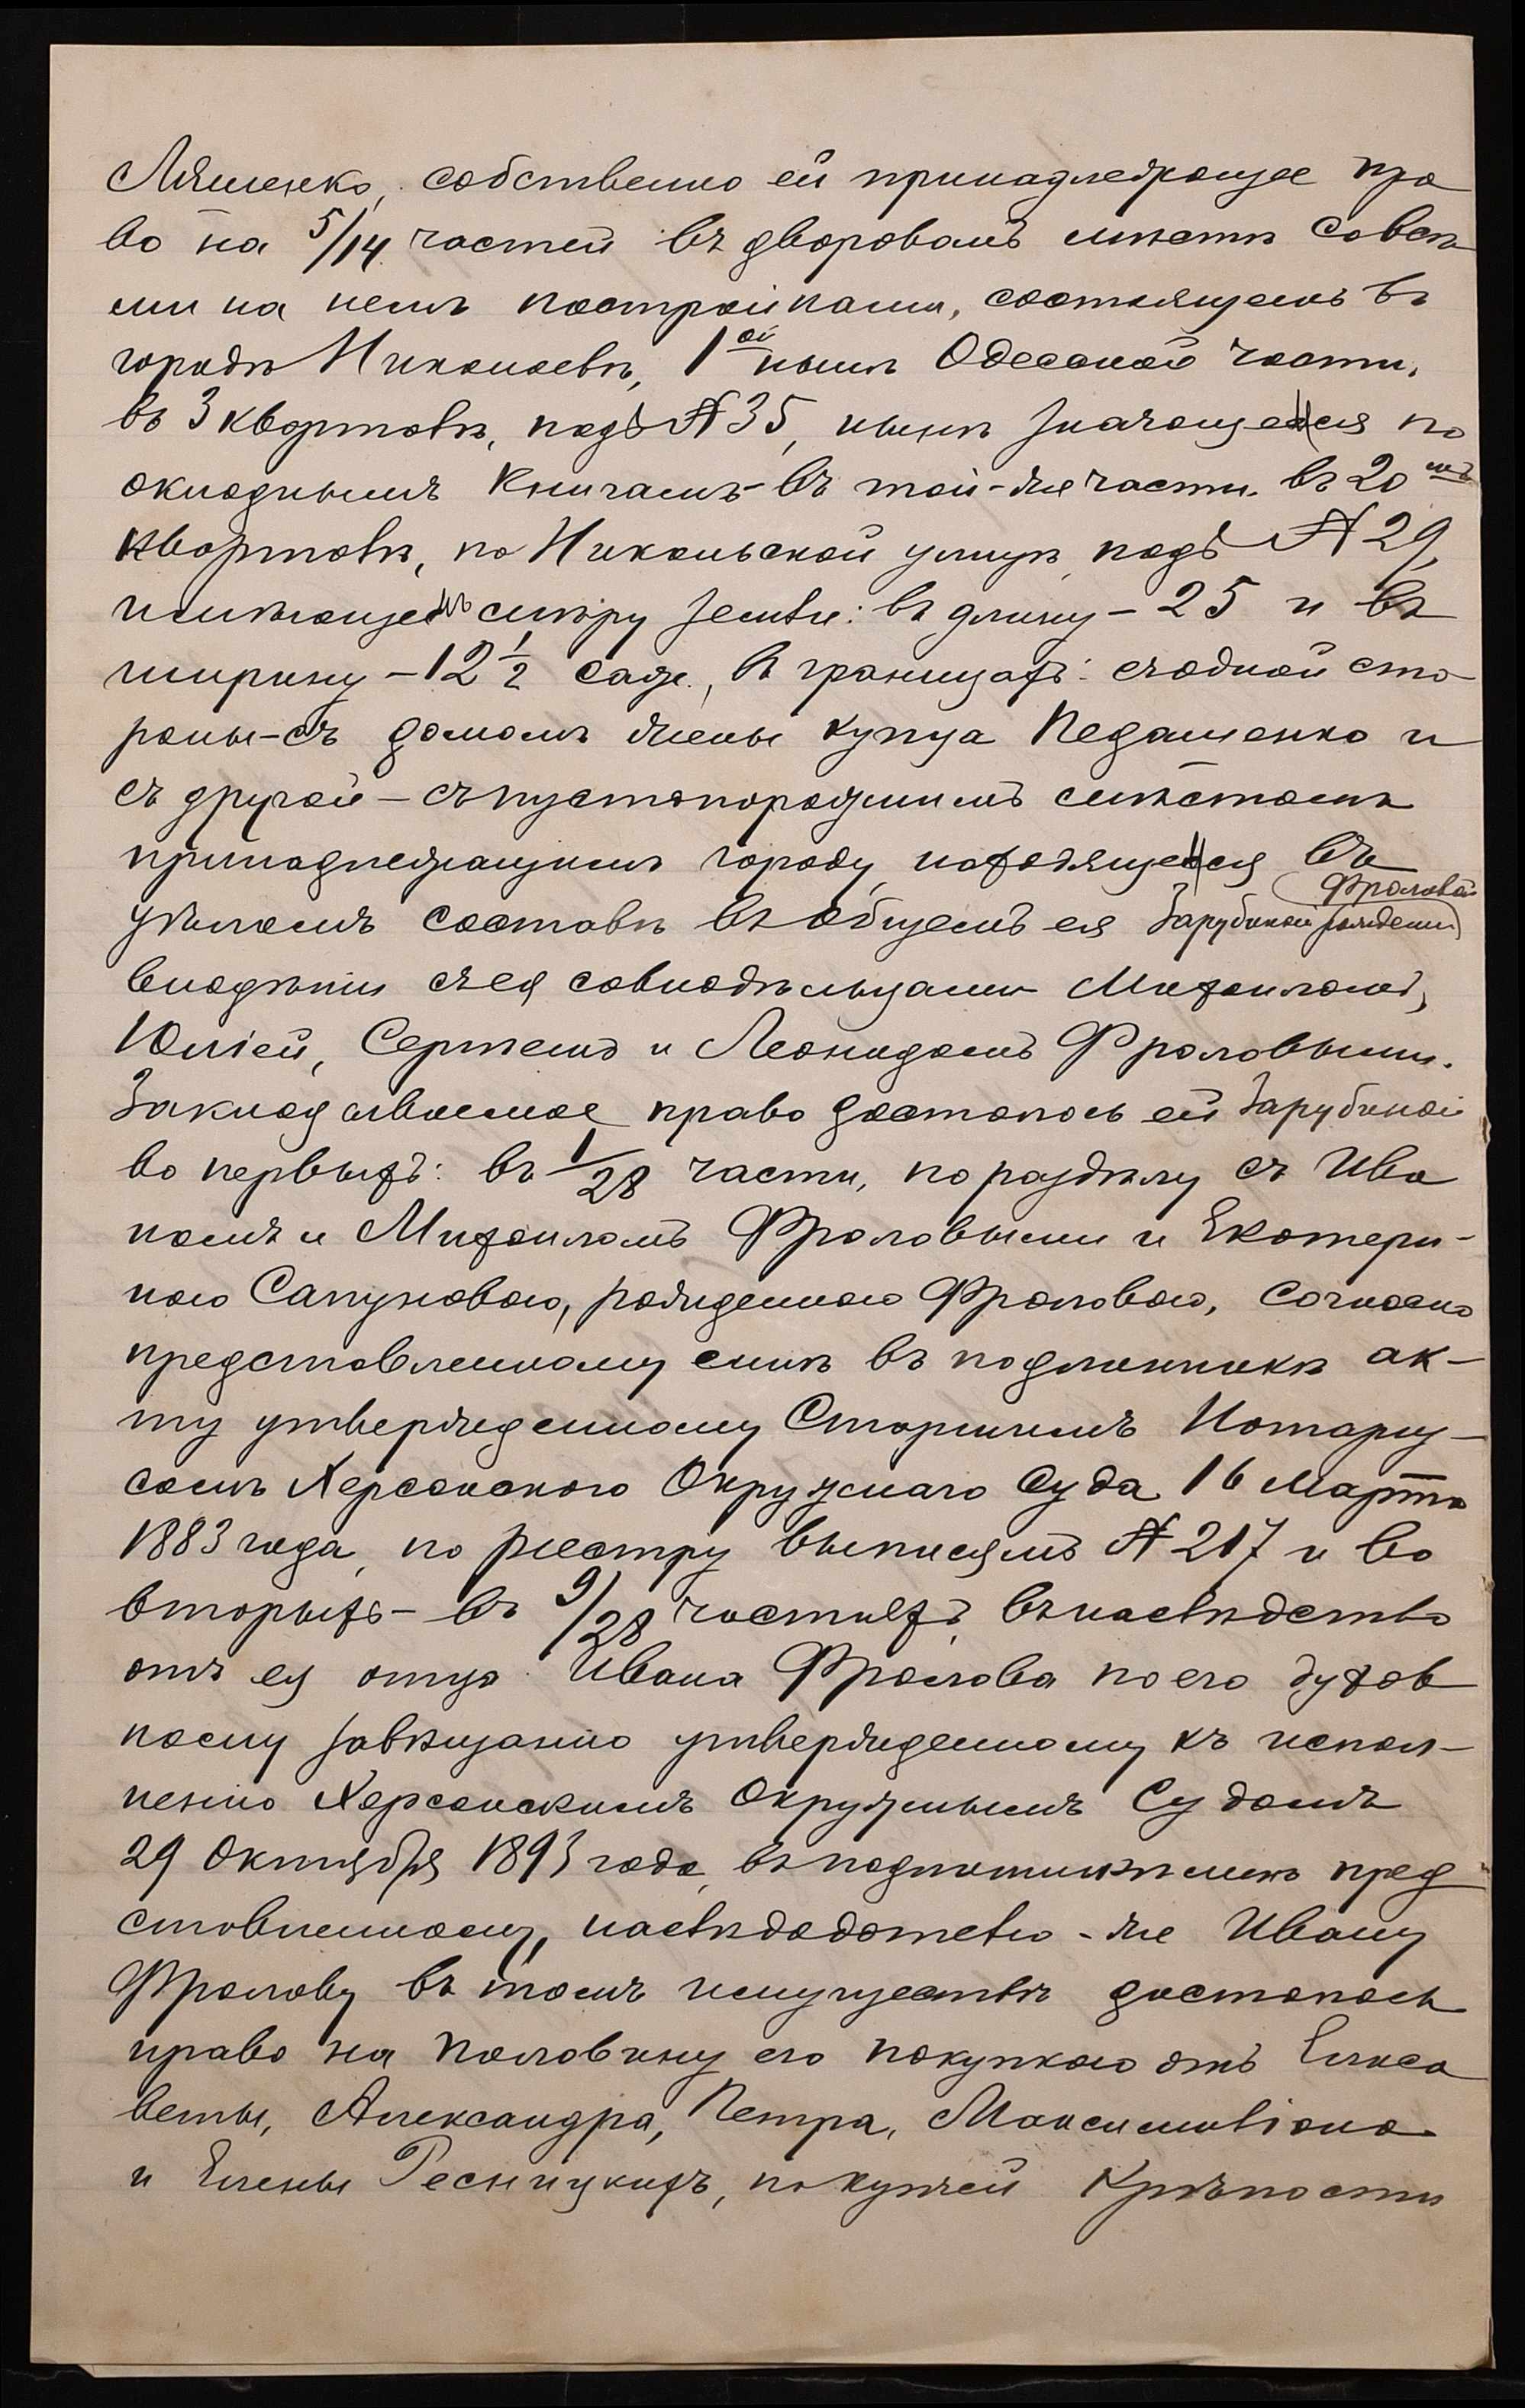 Ляшенко, собственно ей принадлежащее пра
во на 5/14 частей въ дворовомъ мѣстѣ со всѣ
ми на немъ постройками, состоящемъ въ
городѣ Николаевѣ, 1ой нынѣ Одесской части,
въ 3 кварталѣ, подъ № 35, нынѣ значащемся по
окладнымъ книгамъ въ той-же части въ 20мъ
кварталѣ, по Никольской улицѣ подъ № 29,
имѣющемъ мѣру земли: въ длину – 25 и въ
ширину – 12 1/2 саж., въ границахъ: съ одной сто
роны – съ домомъ жены купца Педашенко и
съ другой – съ пустопорожнимъ мѣстомъ
принадлежащимъ городу, находящемся въ
Фроловой
цѣломъ составѣ въ общемъ ея Зарубиной рожденн
владѣніи съ ея совладѣльцами Михаиломъ,
Юліей, Сергѣемъ и Леонидомъ Фроловыми.
Закладываемое право досталось ей Зарубиной
во первыхъ: въ 1/28 части, по раздѣлу съ Ива
номъ и Михаиломъ Фроловыми и Екатери-
ною Сапуновою, рожденною Фроловою, согласно
представленному мнѣ въ подлинникѣ ак-
ту утвержденному Старшимъ Нотаріу-
сомъ Херсонскаго Окружнаго Суда 16 Марта
1883 года, по реестру выписямъ № 217 и во
вторыхъ – въ 9/28 частяхъ, въ наслѣдство
отъ ея отца Ивана Фролова по его духов
ному завѣщанію утвержденному къ испол-
ненію Херсонскимъ Окружнымъ Судомъ
29 Октября 1893 года, въ подлинникѣ мнѣ пред
ставленному, наслѣдодателю-же Ивану
Фролову въ томъ имуществѣ досталось
право на половину его покупкою отъ Елиса
веты, Александра, Петра, Максимиліана
и Елены Ресницкихъ, по купчей крѣпости